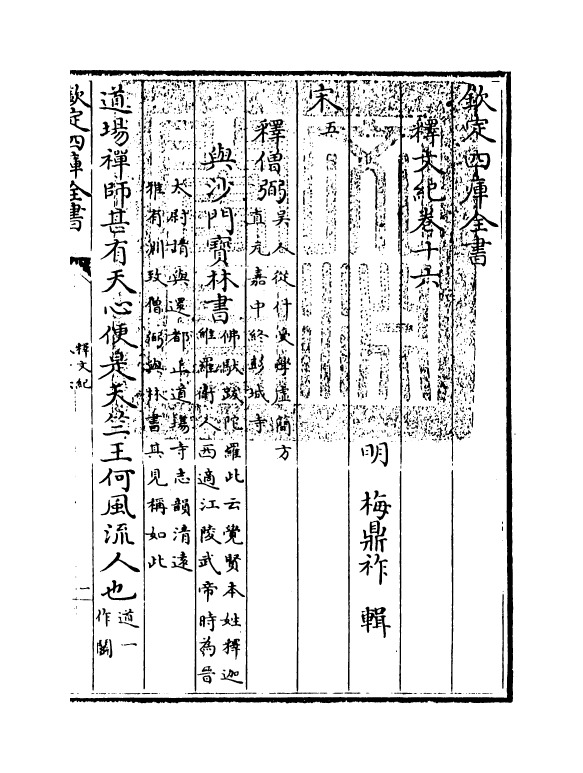 欽定四庫全書
釋文紀卷十六
明 梅鼎祚 輯
宋五
釋僧弼吳人從什受學虛簡方
直元嘉中終彭城寺
與沙門寶林書佛馱跋陀羅此云覺賢本姓釋迦
維羅衛人西適江陵武帝時為晉
太尉請與還都止道場寺志韻清遠
雅有淵致僧弼與林書其見稱如此
道場禪師甚有天心便是天竺王何風流人也道一
作鬬
欽定四庫全書
釋文紀
一